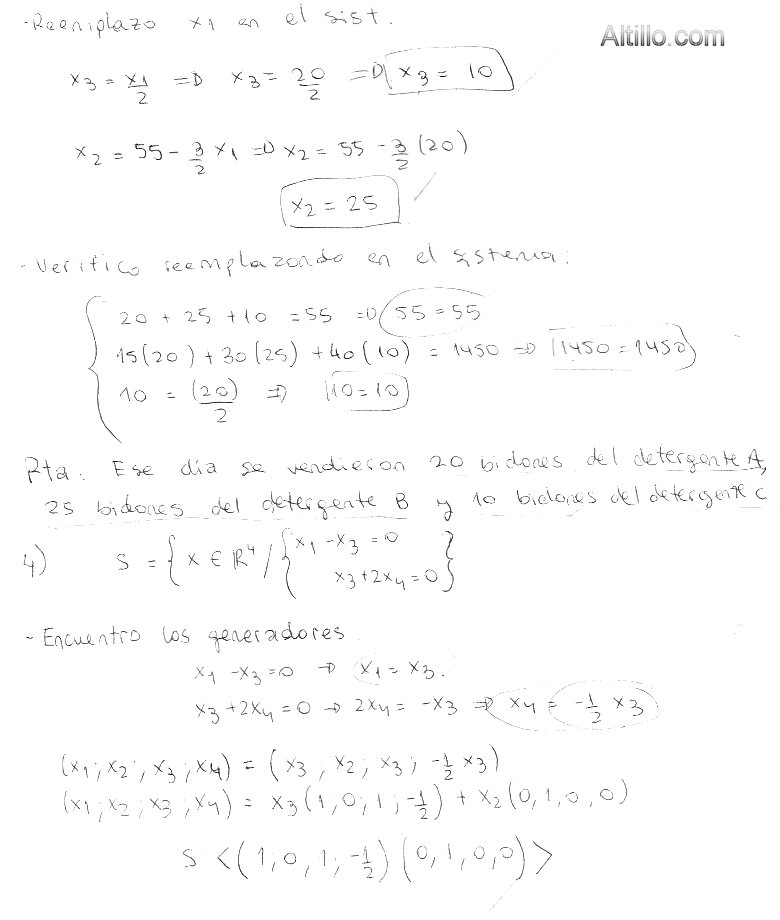 - Reemplazo x1 en el sist.
Altillo.com
x3 = x1/2 => x3 = 20/2 => x3 = 10
x2 = 55 - 3/2 x1 => x2 = 55 - 3/2 (20)
x2 = 25
- Verifico reemplazando en el sistema:
20 + 25 + 10 = 55 => 55 = 55
15(20) + 30(25) + 40(10) = 1450 => 1450 = 1450
10 = (20)/2 => 10 = 10
Rta: Ese día se vendieron 20 bidones del detergente A,
25 bidones del detergente B y 10 bidones del detergente C
4) S = { x ∈ R^4 / { x1 - x3 = 0
x3 + 2x4 = 0 }
- Encuentro los generadores
x1 - x3 = 0 → x1 = x3.
x3 + 2x4 = 0 → 2x4 = -x3 => x4 = -1/2 x3
(x1; x2; x3; x4) = (x3, x2; x3; -1/2 x3)
(x1; x2; x3; x4) = x3 (1, 0; 1; -1/2) + x2 (0, 1, 0, 0)
S < (1, 0, 1; -1/2) (0, 1, 0, 0) >